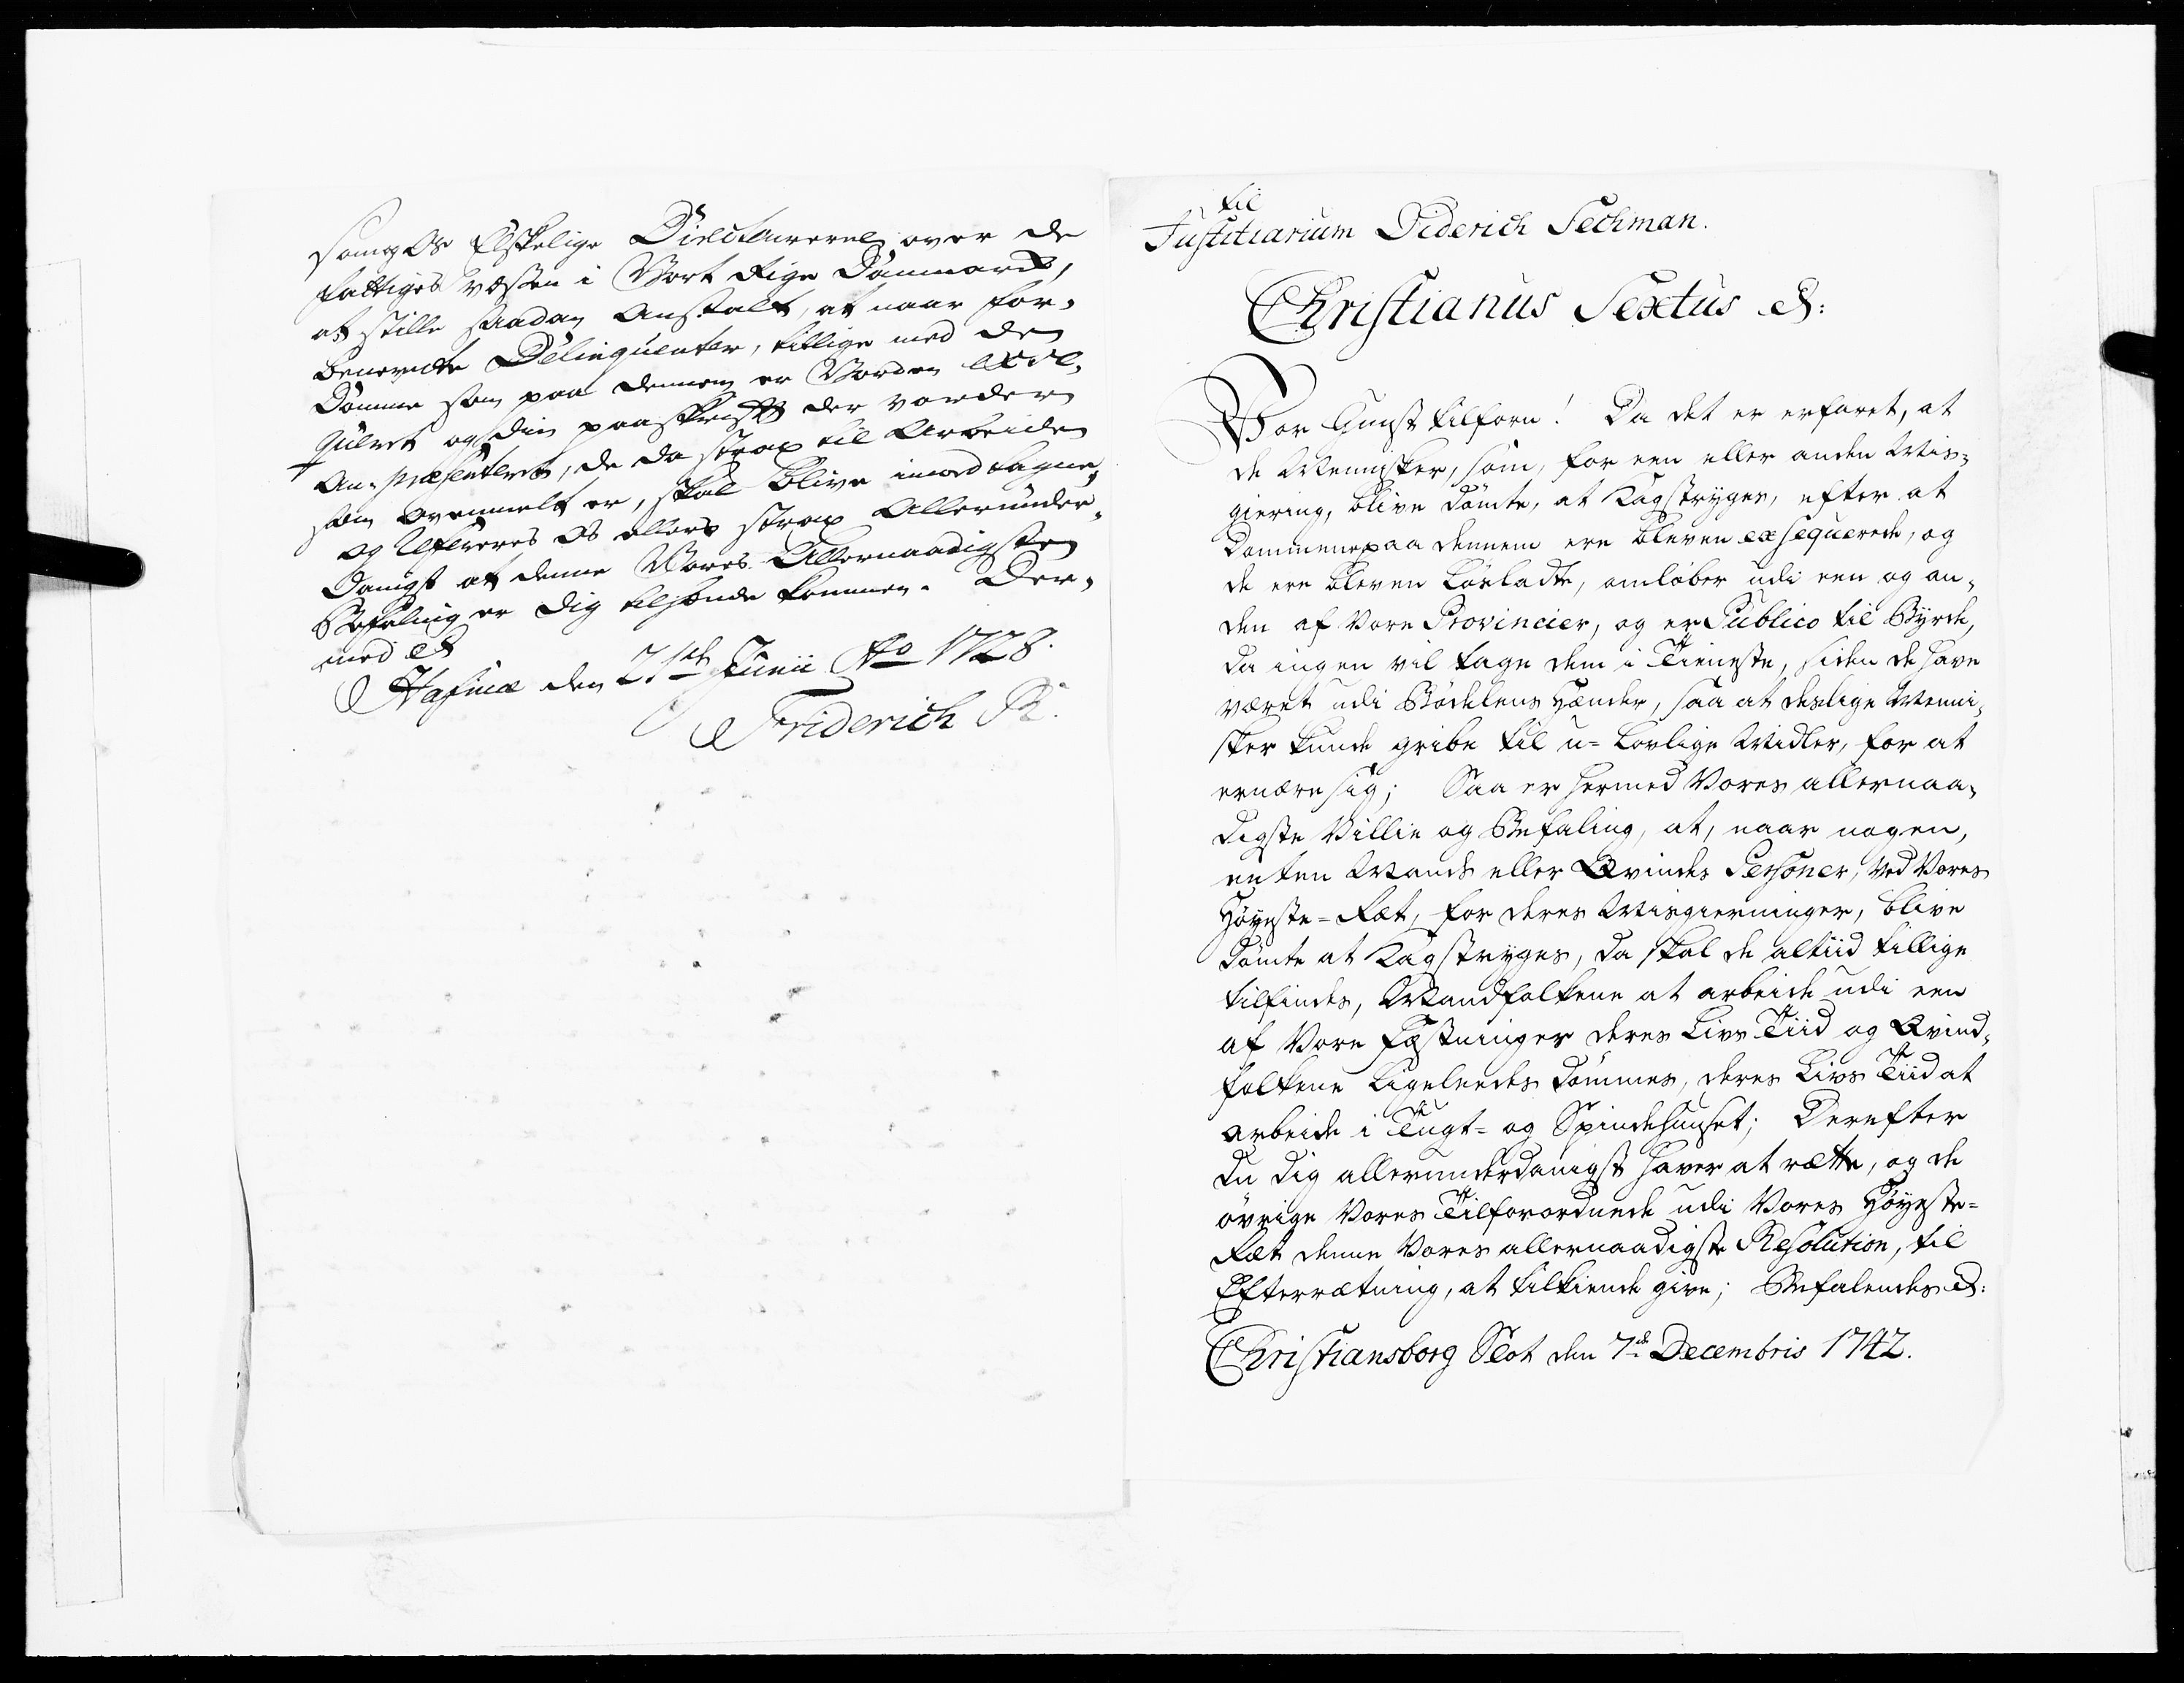 som os Elskelige Directeurerne over de
fattiges væßen i Vort Rige Danmarck,
at stille saadan Anstalt, at naar for-
benevnte Delinqventer, tillige med de
Domme som paa dennem er Vorden
og din paaskrifft der vorder
An-præsenteret, de da strax til Arbeide
som ovenmelt er, skal blive imodtagne,
og Os ellers strax Allerunder-
danigst at denne Vores Allernaadigste
Befaling er dig tilhænde kommen. Der-
med &
Hafniæ den 21de Junii Ao 1728.
Friderich R.
til
Justitiarium Diderich Sechman.
Christianus Sextus &:
Vor Gunst tilforn! Da det er erfaret, at
de Mennisker, som, for een eller anden Mis-
giering, blive dömte, at Kagstryges, efter at
Dommene paa dennem ere bleven exsequerede, og
de ere bleven løsladte, omløber udi een og an-
den af Vore Provincier, og er Publico til Byrde,
da ingen vil tage dem i Tieneste, siden de have
været udi Bödelens Hænder, saa at deslige Menni-
sker kunde gribe til u-lovlige Midler, for at
ernære sig; Saa er hermed Vores allernaa-
digste Villie og Befaling, at, naar nogen,
enten Mands eller Qvindes Personer, ved Vores
Høyeste-Ræt, for deres Misgierninger, blive
dömte at Kagstryges, da skal de altiid tillige
tilfindes, Mandfolkene at arbeide udi een
af Vore Fæstninger deres Livs Tiid og Qvind-
folkene ligeleedes dömmes, deres Livs Tiid at
arbeide i Tugt- og Spindehuuset; Derefter
du dig allerunderdanigst haver at rette, og de
övrige Vores Tilforordnede udi Vores Høyeste-
Ræt denne Vores allernaadigste Resolution, til
Efterrætning, at tilkiende give; Befalendes &:
Christiansborg Slot den 7de Decembris 1742.